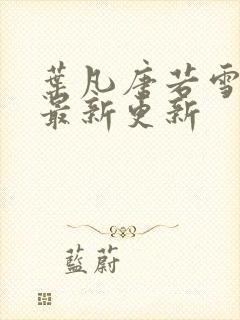 葉凡唐若雪
最新更新
藍蔚